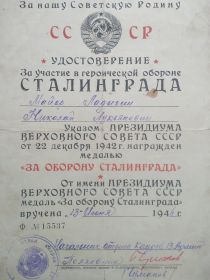 За нашу Советскую Родину
СС СР
УДОСТОВЕРЕНИЕ
За участие в героической обороне
СТАЛИНГРАДА
Майор Ладыгин
Николай Лукьянович
Указом ПРЕЗИДИУМА
ВЕРХОВНОГО СОВЕТА СССР
от 22 декабря 1942 г. награжден
медалью
«ЗА ОБОРОНУ СТАЛИНГРАДА»
От имени ПРЕЗИДИУМА
ВЕРХОВНОГО СОВЕТА СССР
медаль «За оборону Сталинграда»
вручена 194 г.
Ф № 15537
Начальник отдела кадров
Полковник